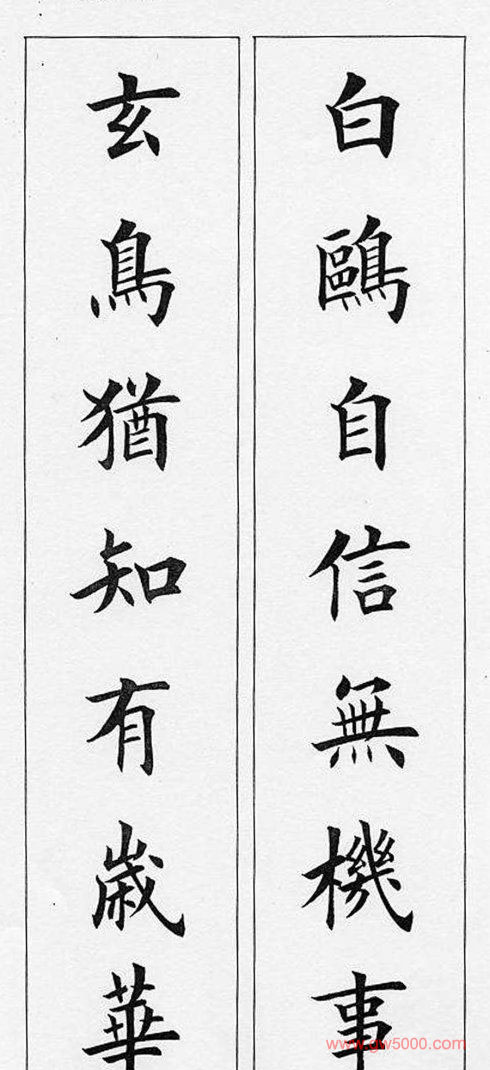 白鷗自信無機事
玄鳥猶知有歲華
www.gw5000.com